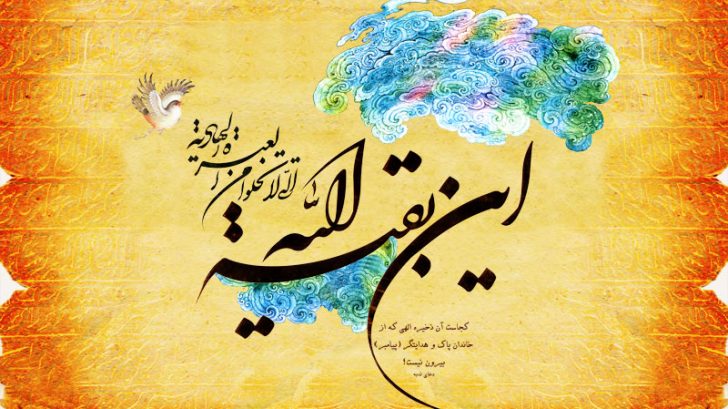 این بقیة الله
التی لا تخلوا من
العترة الهادیة
کجاست آن ذخیره الهی که از
خاندان پاک و هدایتگر (پیامبر)
بیرون نیست!
دعای ندبه